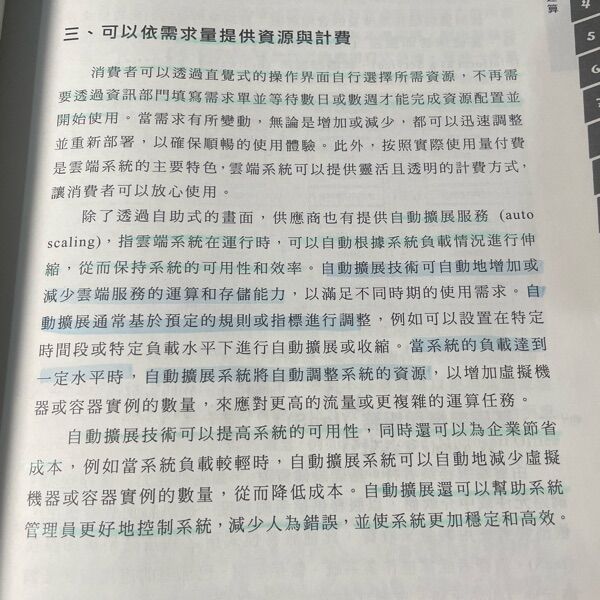 三、可以依需求量提供資源與計費
消費者可以透過直覺式的操作界面自行選擇所需資源，不再需
要透過資訊部門填寫需求單並等待數日或數週才能完成資源配置並
開始使用。當需求有所變動，無論是增加或減少，都可以迅速調整
並重新部署，以確保順暢的使用體驗。此外，按照實際使用量付費
是雲端系統的主要特色，雲端系統可以提供靈活且透明的計費方式，
讓消費者可以放心使用。
除了透過自助式的畫面，供應商也有提供自動擴展服務 (auto
scaling)，指雲端系統在運行時，可以自動根據系統負載情況進行伸
縮，從而保持系統的可用性和效率。自動擴展技術可自動地增加或
減少雲端服務的運算和存儲能力，以滿足不同時期的使用需求。自
動擴展通常基於預定的規則或指標進行調整，例如可以設置在特定
時間段或特定負載水平下進行自動擴展或收縮。當系統的負載達到
一定水平時，自動擴展系統將自動調整系統的資源，以增加虛擬機
器或容器實例的數量，來應對更高的流量或更複雜的運算任務。
自動擴展技術可以提高系統的可用性，同時還可以為企業節省
成本，例如當系統負載較輕時，自動擴展系統可以自動地減少虛擬
機器或容器實例的數量，從而降低成本。自動擴展還可以幫助系統
管理員更好地控制系統，減少人為錯誤，並使系統更加穩定和高效。
算
4
5
6